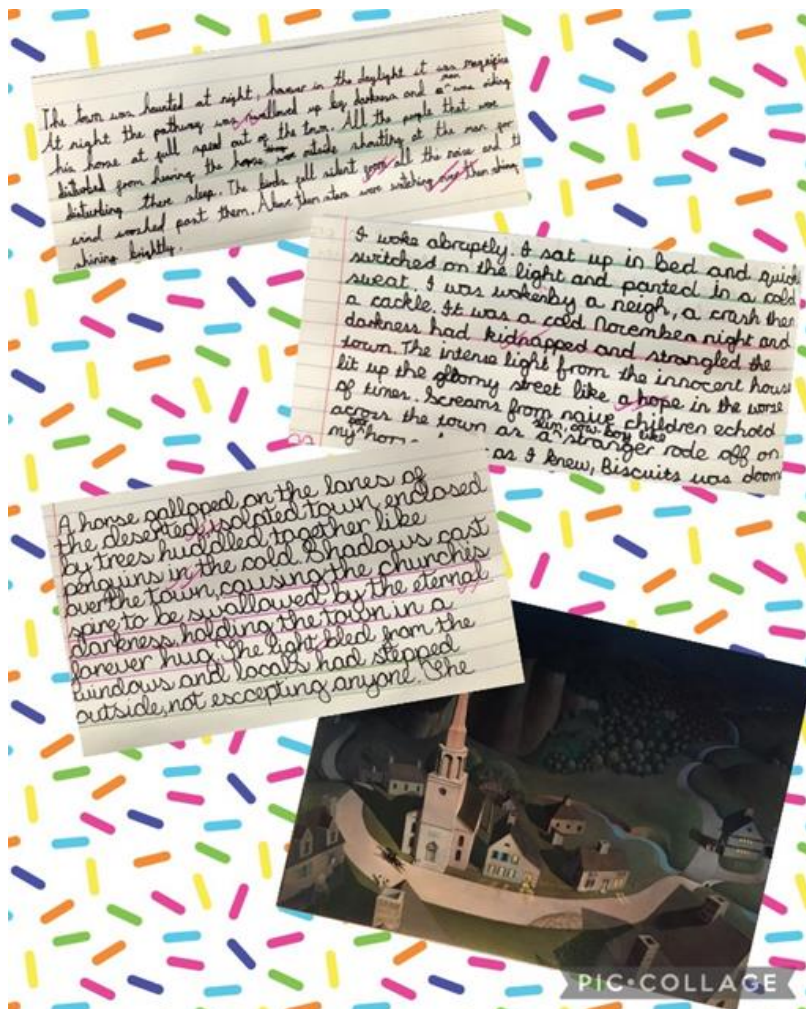 The town was haunted at night, however in the daylight it was
At night the pathway was swallowed up by darkness and a man were riding
his horse at full speed out of the town. All the people that were
disturbed from hearing the horse were outside shouting at the man for
disturbing there sleep. The birds fell silent from all the noise and
wind wooshed past them. Above them stars were watching over them shining
shining brightly.
I woke abruptly. I sat up in bed and
switched on the light and panted in a cold
sweat. I was woken by a neigh, a crash then
a cackle. It was a cold November night and
darkness had kidnapped and strangled the
town. The intense light from the innocent house
lit up the gloomy street like a hope in the worse
of times. Screams from naive children echoed
slim, cow-boy like
across the town as a stranger rode off on
my as I knew, Biscuits was
A horse galloped on the lanes of
the deserted, isolated town, enclosed
by trees huddled together like
penguins in the cold. Shadows cast
over the town, causing the churches
spire to be swallowed by the eternal
darkness, holding the town in a
forever hug. The light bled from the
windows and locals had stepped
outside, not escepting anyone. She
PIC•COLLAGE